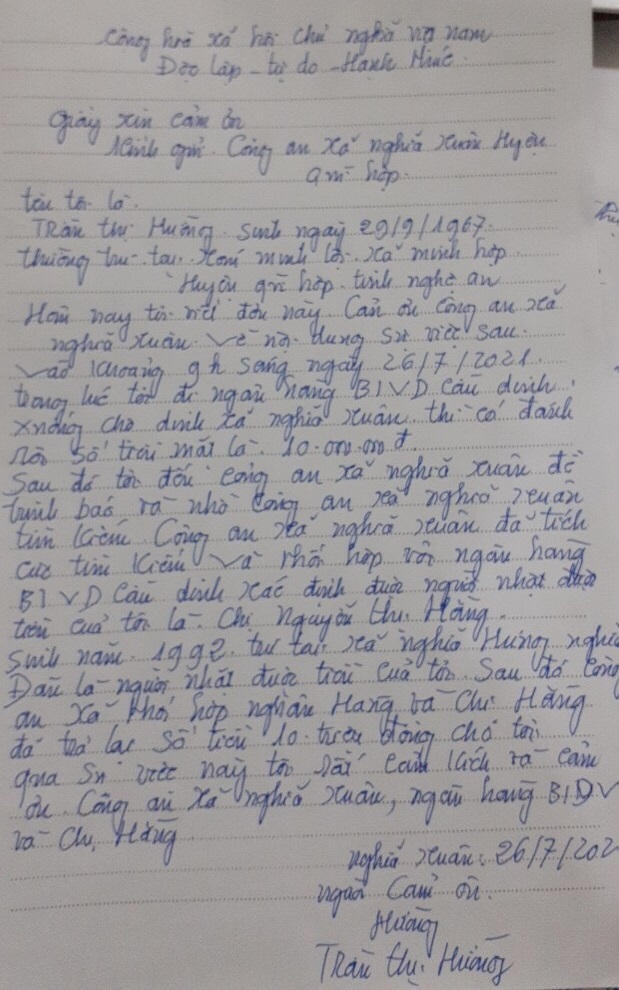 Cộng hoà xã hội chủ nghĩa việt nam
Độc lập - tự do - Hạnh Phúc.
Giấy xin cảm ơn
Kính gửi. Công an xã nghĩa xuân Huyện
quì hợp.
tên tôi là.
TRần thị Hường. sinh ngày 29/9/1967.
thường trú tại. xóm minh lợi. xã minh hợp
Huyện quì hợp. tỉnh nghệ an
Hôm nay tôi viết đơn này. Cảm ơn công an xã
nghĩa xuân. về nội dung sự việc sau.
vào khoảng 9h sáng ngày 26/7/2021.
trong lúc tôi đi ngân hàng BIVD cầu dinh.
xuống chợ dinh xã nghĩa xuân. thì có đánh
rơi số tiền mặt là. 10.000.000đ.
Sau đó tôi đến công an xã nghĩa xuân để
trình báo và nhờ công an xã nghĩa xuân
tìm kiếm. Công an xã nghĩa xuân đã tích
cực tìm kiếm và Phối hợp với ngân hàng
BIVD cầu dinh xác định được người nhặt được
tiền của tôi là. Chị Nguyễn thị Hằng.
sinh năm. 1992. trú tại. xã nghĩa Hưng nghĩa
Đàn là người nhặt được tiền của tôi. Sau đó công
an xã Phối hợp nghân Hàng và Chị Hằng
đã trả lại số tiền 10 triệu đồng cho tôi
qua sự việc này tôi rất cảm kích và cảm
ơn. Công an xã nghĩa xuân, ngân hàng BIDV
và Chị Hằng
nghĩa xuân. 26/7/202
người Cảm ơn.
Hường
Trần thị Hường